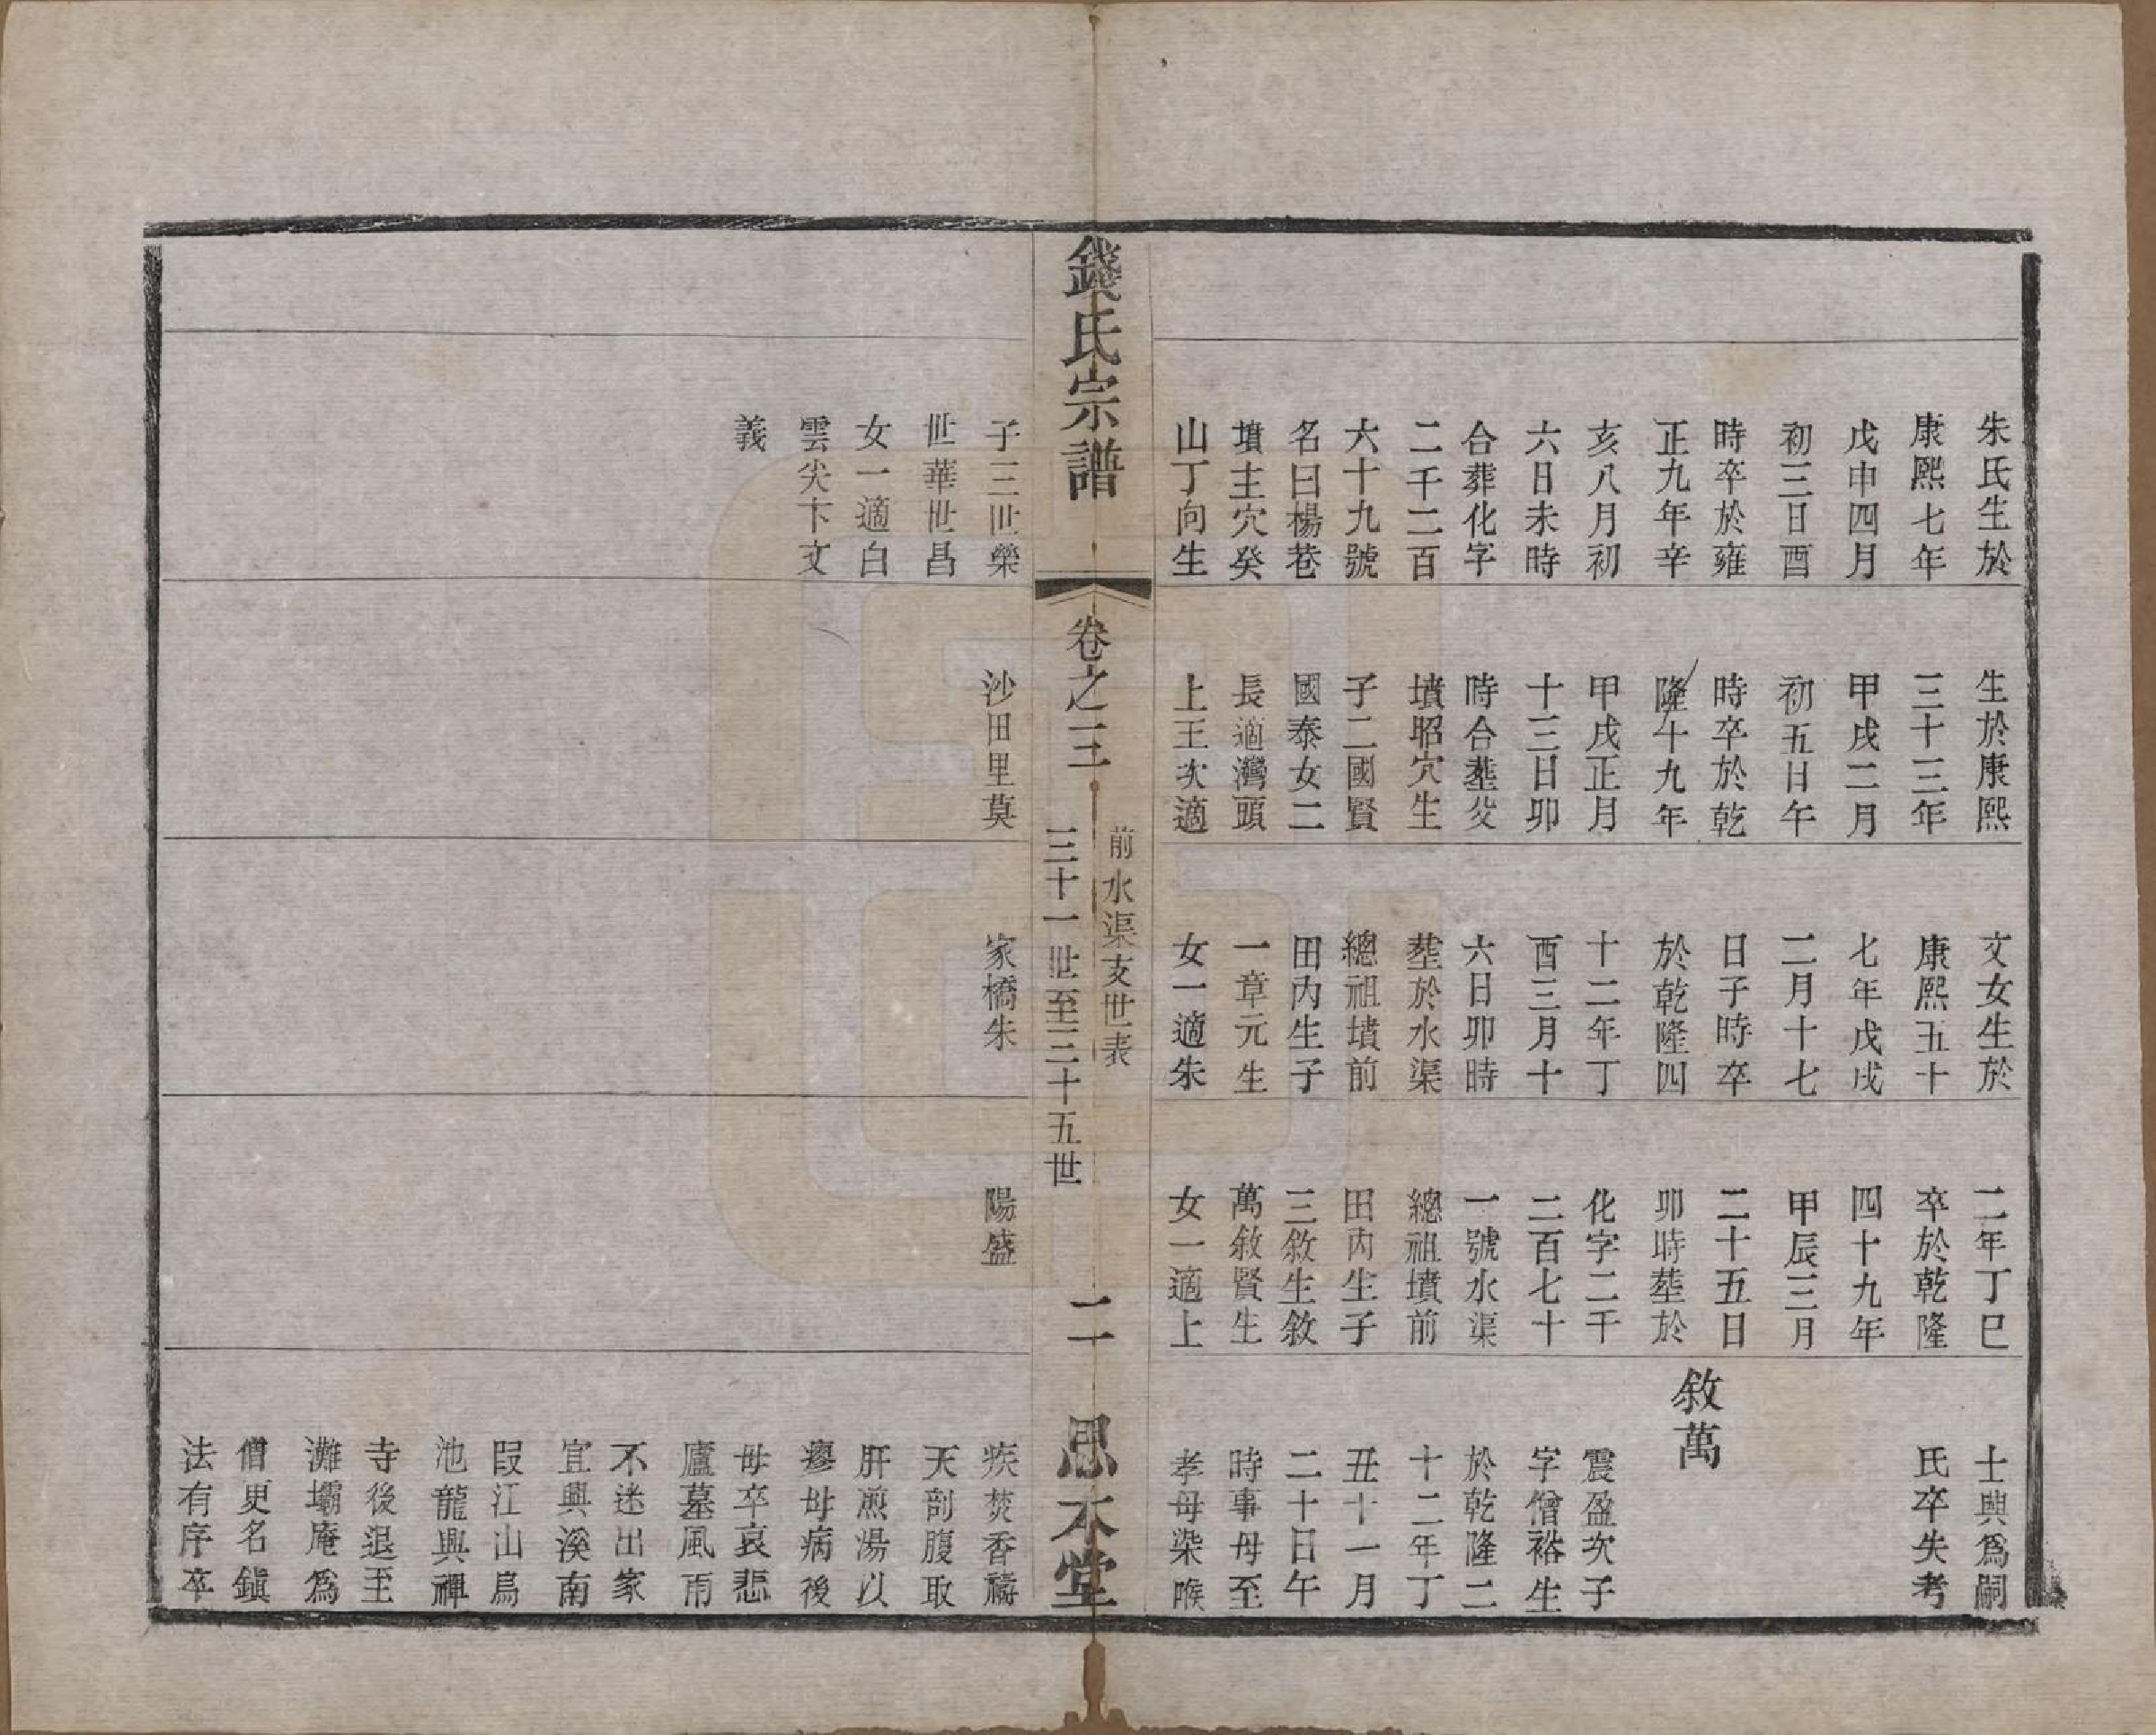 朱氏生於
康熙七年
戊申四月
初三日酉
時卒於雍
正九年辛
亥八月初
六日未時
合葬化字
二千二百
六十九號
名曰楊巷
墳主穴癸
山丁向生
生於康熙
三十三年
甲戌二月
初五日午
時卒於乾
隆十九年
甲戌正月
十三日卯
時合塟父
墳昭穴生
子二國賢
國泰女二
長適灣頭
上王次適
文女生於
康熙五十
七年戊戌
二月十七
日子時卒
於乾隆四
十二年丁
酉三月十
六日卯時
塟於水渠
總祖墳前
田內生子
一章元生
女一適朱
二年丁巳
卒於乾隆
四十九年
甲辰三月
二十五日
卯時塟於
化字二千
二百七十
一號水渠
總祖墳前
田內生子
三敘生敘
萬敘賢生
女一適上
士興為嗣
氏卒失考
敘萬
震盈次子
字僧裕生
於乾隆二
十二年丁
丑十一月
二十日午
時事母至
孝母染喉
錢氏宗譜
卷之三
前水渠支世表
三十一世至三十五世
二
思本堂
子三世榮
世華世昌
女一適白
雲尖卞文
義
沙田里莫
家橋朱
陽盛
疾焚香禱
天剖腹取
肝煎湯以
瘳母病後
母卒哀悲
廬墓風雨
不迷出家
宜興溪南
段江山烏
池龍興禪
寺後退王
灘壩庵為
僧更名鎮
法有序卒